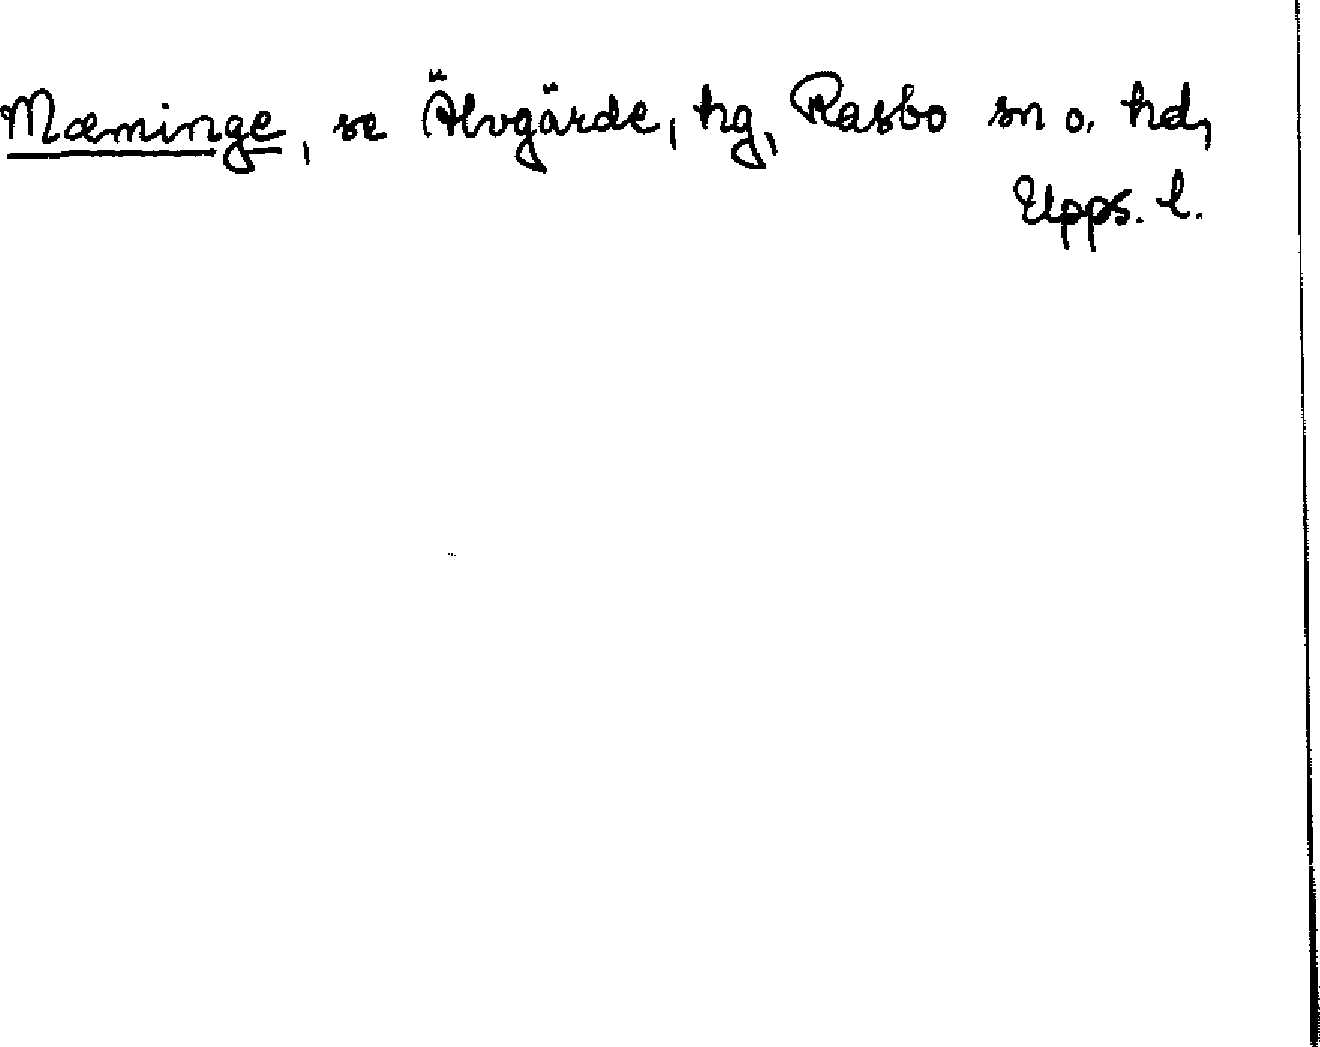 Mæminge, se Älvgärde, hg, Rasbo sn o. hd,
Upps. l.